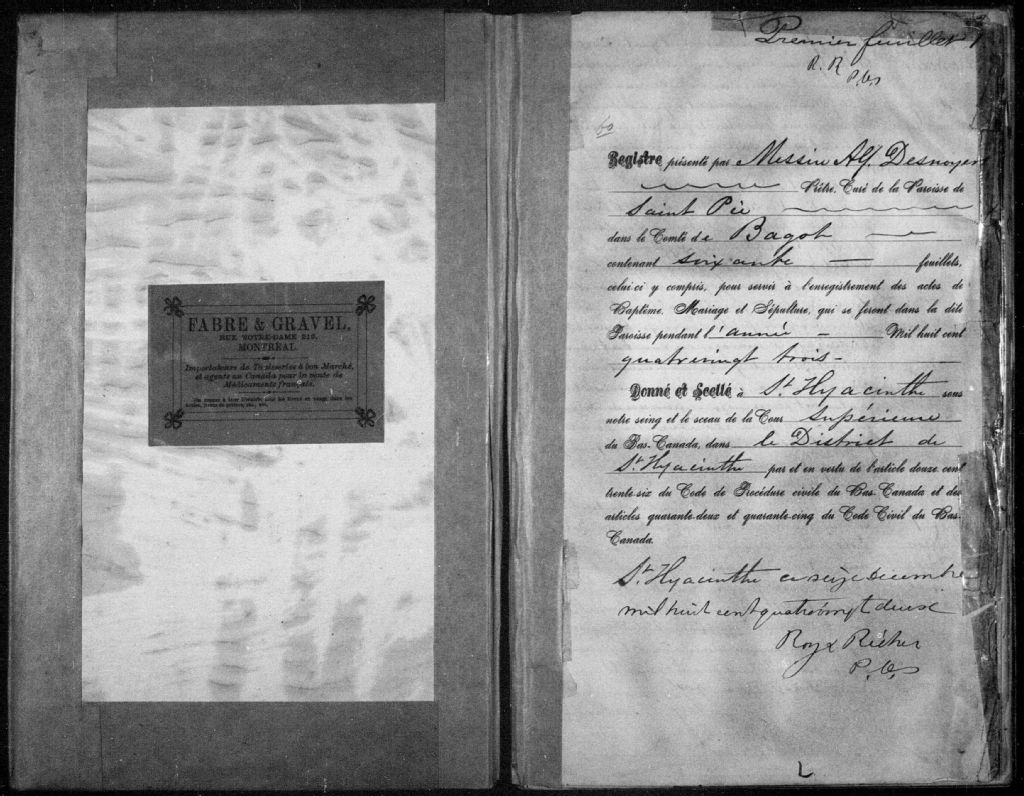 FABRE & GRAVEL,
RUE NOTRE-DAME 219,
MONTREAL.
Importateurs de Tapisseries à bon Marché,
et agents au Canada pour la vente de
Médicaments français.
Premier feuillet 1
R. R
P.C.S
60
Registre présenté par Messire Alf. Desnoyers
Prêtre, Curé de la Paroisse de
Saint Pie
dans le Comté de Bagot
contenant soixante feuillets,
celui-ci y compris, pour servir à l'enregistrement des actes de
Baptême, Mariage et Sépulture, qui se feront dans la dite
Paroisse pendant l'année Mil huit cent
quatrevingt trois -
Donné et Scellé à St. Hyacinthe sous
notre seing et le sceau de la Cour Supérieure
du Bas-Canada, dans le District de
St. Hyacinthe par et en vertu de l'article douze cent
trente-six du Code de Procédure civile du Bas-Canada et des
articles quarante-deux et quarante-cinq du Code Civil du Bas-
Canada.
St. Hyacinthe ce seize decembre
mil huit cent quatrevingt deux
Roy & Richer
P.C.S